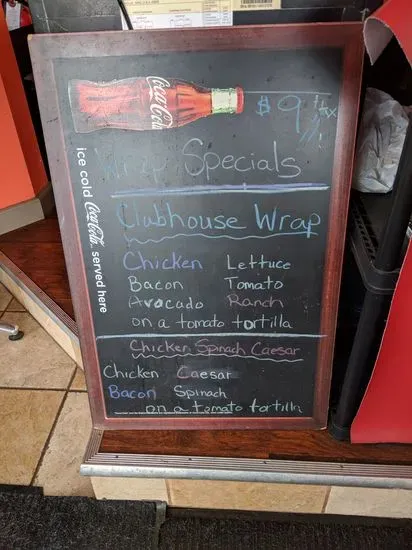 Coca-Cola
$9 1/tx
Wrap Specials
ice cold Coca-Cola served here
Clubhouse Wrap
Chicken Lettuce
Bacon Tomato
Avocado Ranch
on a tomato tortilla
Chicken Spinach Caesar
Chicken Caesar
Bacon Spinach
on a tomato tortilla